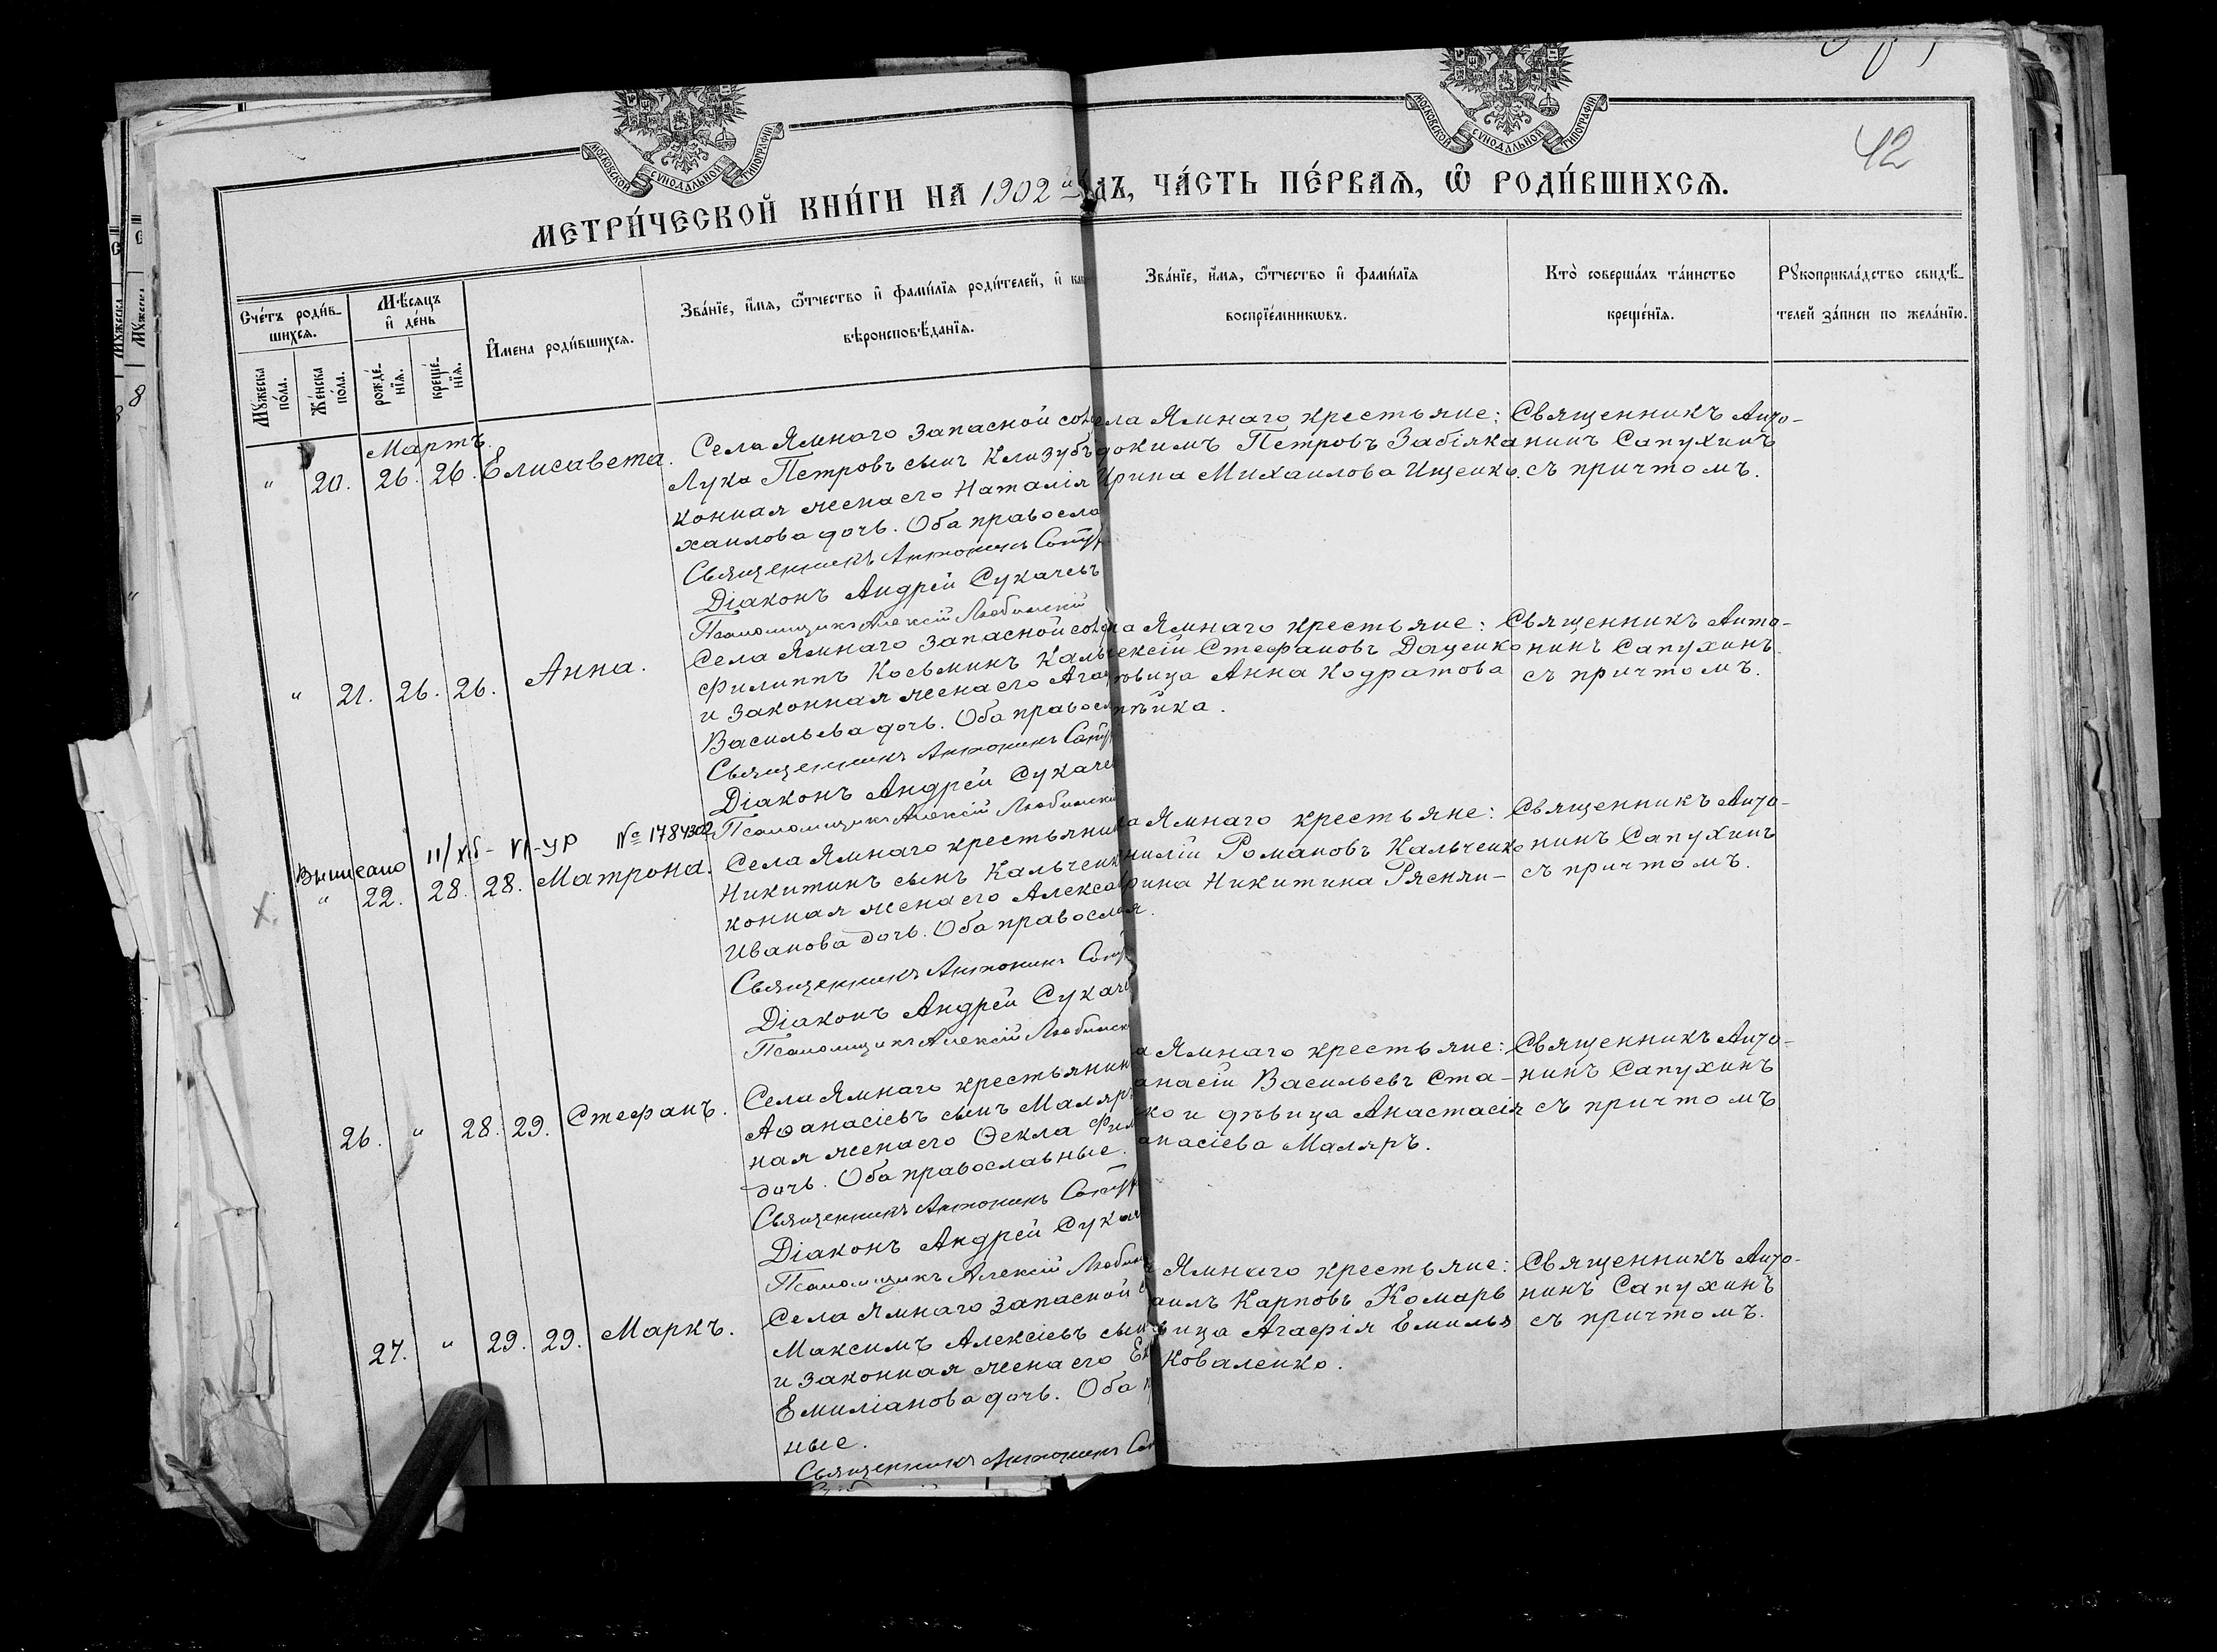 МОСКОВСКОЙ СУНОДАЛЬНОЙ ТИПОГРАФІИ
МОСКОВСКОЙ СУНОДАЛЬНОЙ ТИПОГРАФІИ
42
МЕТРИ́ЧЕСКОЙ КНИ́ГИ НА 1902 й дъ, ЧА́СТЬ ПЕ́РВАѦ, Ѡ҆ РОДИ́ВШИХСѦ.
Сче́тъ роди́в-
шихсѧ.
Мꙋ́жеска по́ла.
Же́нска по́ла.
Мѣ́сяцъ
и҆ де́нь
рожде́-
нїѧ.
креще́-
нїѧ.
И҆мена роди́вшихсѧ.
Зва́нїе, и҆́мѧ, ѻ҆́тчество и҆ фами́лїѧ роди́телей, и҆ как
вѣроисповѣ́данїѧ.
Зва́нїе, и҆́мѧ, ѻ҆́тчество и҆ фами́лїѧ
воспрїе́мникѡвъ.
Кто̀ соверша́лъ та́инство
креще́нїѧ.
Рꙋкоприкла́дство свидѣ́-
телей за́писи по жела́нїю.
Мартъ.
" 20. 26. 26. Елисавета.
Села Ямнаго запасной сол
Лука Петровъ сынъ Клизубъ
конная жена его Наталія
хаилова дочь. Оба правосла
Священникъ Антонинъ Сапу
Діаконъ Андрей Сукачевъ
Псаломщикъ Алексій Любинскій
ела Ямнаго крестьяне:
докимъ Петровъ Забіяка
Ирина Михаилова Ищенко.
Священникъ Анто-
нинъ Сапухинъ
съ причтомъ.
" 21. 26. 26. Анна.
Села Ямнаго запасной сол
Филиппъ Косьминъ Каль
и законная жена его Ага
Васильева дочь. Оба правосл
Священникъ Антонинъ Сапу
Діаконъ Андрей Сукаче
Псаломщикъ Алексій Любински
ла Ямнаго крестьяне:
ексій Стефановъ Даценко
ѣвица Анна Кодратова
пѣйка.
Священникъ Анто-
нинъ Сапухинъ
съ причтомъ.
Выписано № 1784302
" 22. 28. 28. Матрона.
Села Ямнаго крестьянин
Никитинъ сынъ Кальченк
конная жена его Алекса
Иванова дочь. Оба правосла
Священникъ Антонинъ Сапу
Діаконъ Андрей Сукаче
Псаломщикъ Алексій Любинск
а Ямнаго крестьяне:
нилій Романовъ Кальченко
рина Никитина Рясняи-
я.
Священникъ Анто-
нинъ Сапухинъ
съ причтомъ.
26. " 28. 29. Стефанъ.
Села Ямнаго крестьянин
Аѳанасіевъ сынъ Маляръ
ная жена его Ѳекла Фил
дочь. Оба православные.
Священникъ Антонинъ Сапу
Діаконъ Андрей Сукач
Псаломщикъ Алексій Любин
а Ямнаго крестьяне:
анасій Васильевъ Ста-
ко и дѣвица Анастасія
анасіева Маляръ.
Священникъ Анто-
нинъ Сапухинъ
съ причтомъ
27. " 29. 29. Маркъ.
Села Ямнаго запасной
Максимъ Алексіевъ сын
и законная жена его Ек
Емиліанова дочь. Оба п
ные.
Священникъ Антонинъ Сап
Ямнаго крестьяне:
аилъ Карповъ Комарь
вица Агафія Емилья
Коваленко.
Священникъ Анто-
нинъ Сапухинъ
съ причтомъ.